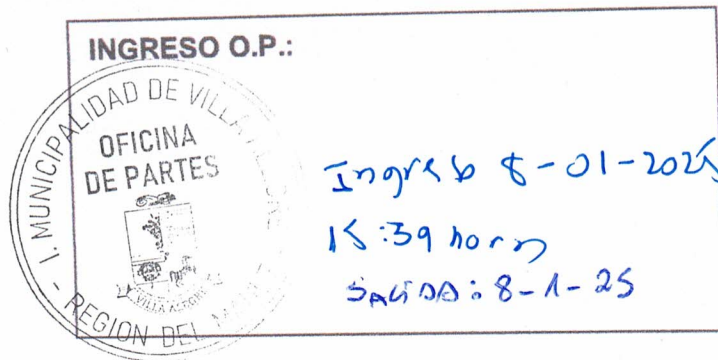 INGRESO O.P.:
I. MUNICIPALIDAD DE VILLA ALEGRE
OFICINA
DE PARTES
VILLA ALEGRE
- REGION DEL MAULE
Ingreso 8-01-2025
15:39 horas
SALIDA: 8-1-25